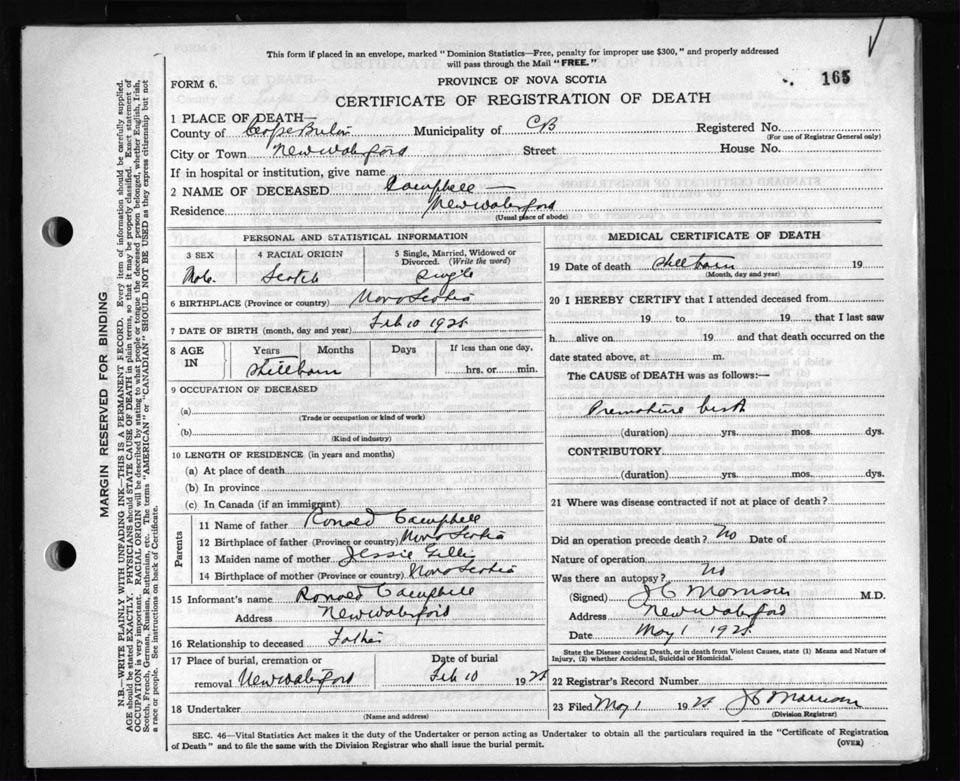 This form if placed in an envelope, marked "Dominion Statistics—Free, penalty for improper use $300," and properly addressed
will pass through the Mail "FREE."
FORM 6.
PROVINCE OF NOVA SCOTIA
165
CERTIFICATE OF REGISTRATION OF DEATH
1 PLACE OF DEATH—
County of Cape Breton Municipality of CB Registered No.
(For use of Registrar General only)
City or Town New Waterford Street House No.
If in hospital or institution, give name
2 NAME OF DECEASED Campbell —
Residence New Waterford
(Usual place of abode)
PERSONAL AND STATISTICAL INFORMATION
3 SEX 4 RACIAL ORIGIN 5 Single, Married, Widowed or Divorced. (Write the word)
Male Scotch Single
6 BIRTHPLACE (Province or country) Nova Scotia
7 DATE OF BIRTH (month, day and year) Feb 10
8 AGE IN Years Months Days If less than one day,
Stillborn hrs. or min.
9 OCCUPATION OF DECEASED
(a)
(Trade or occupation or kind of work)
(b)
(Kind of industry)
10 LENGTH OF RESIDENCE (in years and months)
(a) At place of death
(b) In province
(c) In Canada (if an immigrant)
Parents
11 Name of father Ronald Campbell
12 Birthplace of father (Province or country) Nova Scotia
13 Maiden name of mother Jessie Gillis
14 Birthplace of mother (Province or country) Nova Scotia
15 Informant's name Ronald Campbell
Address New Waterford
16 Relationship to deceased Father
17 Place of burial, cremation or Date of burial
removal New Waterford Feb 10 192
18 Undertaker
(Name and address)
MEDICAL CERTIFICATE OF DEATH
19 Date of death Stillborn 19
(Month, day and year)
20 I HEREBY CERTIFY that I attended deceased from
19 to 19 that I last saw
h alive on 19 and that death occurred on the
date stated above, at m.
The CAUSE of DEATH was as follows:—
Premature birth
(duration) yrs. mos. dys.
CONTRIBUTORY
(duration) yrs. mos. dys.
21 Where was disease contracted if not at place of death?
Did an operation precede death? No Date of
Nature of operation
Was there an autopsy? No
(Signed) J C Morrison M.D.
Address New Waterford
Date May 1
State the Disease causing Death, or in death from Violent Causes, state (1) Means and Nature of
Injury, (2) whether Accidental, Suicidal or Homicidal.
22 Registrar's Record Number
23 Filed May 1 192 J C Morrison
(Division Registrar)
SEC. 46—Vital Statistics Act makes it the duty of the Undertaker or person acting as Undertaker to obtain all the particulars required in the "Certificate of Registration
of Death" and to file the same with the Division Registrar who shall issue the burial permit.
(OVER)
MARGIN RESERVED FOR BINDING
N.B.—WRITE PLAINLY WITH UNFADING INK—THIS IS A PERMANENT RECORD. Every item of information should be carefully supplied.
AGE should be stated EXACTLY. PHYSICIANS should STATE CAUSE OF DEATH in plain terms, so that it may be properly classified. Exact statement of
OCCUPATION is very important. RACIAL ORIGIN will be described by stating to what people or tongue the deceased person belonged, whether English, Irish,
Scotch, French, German, Russian, Ruthenian, etc. The terms "AMERICAN" or "CANADIAN" SHOULD NOT BE USED as they express citizenship but not
a race or people. See instructions on back of Certificate.